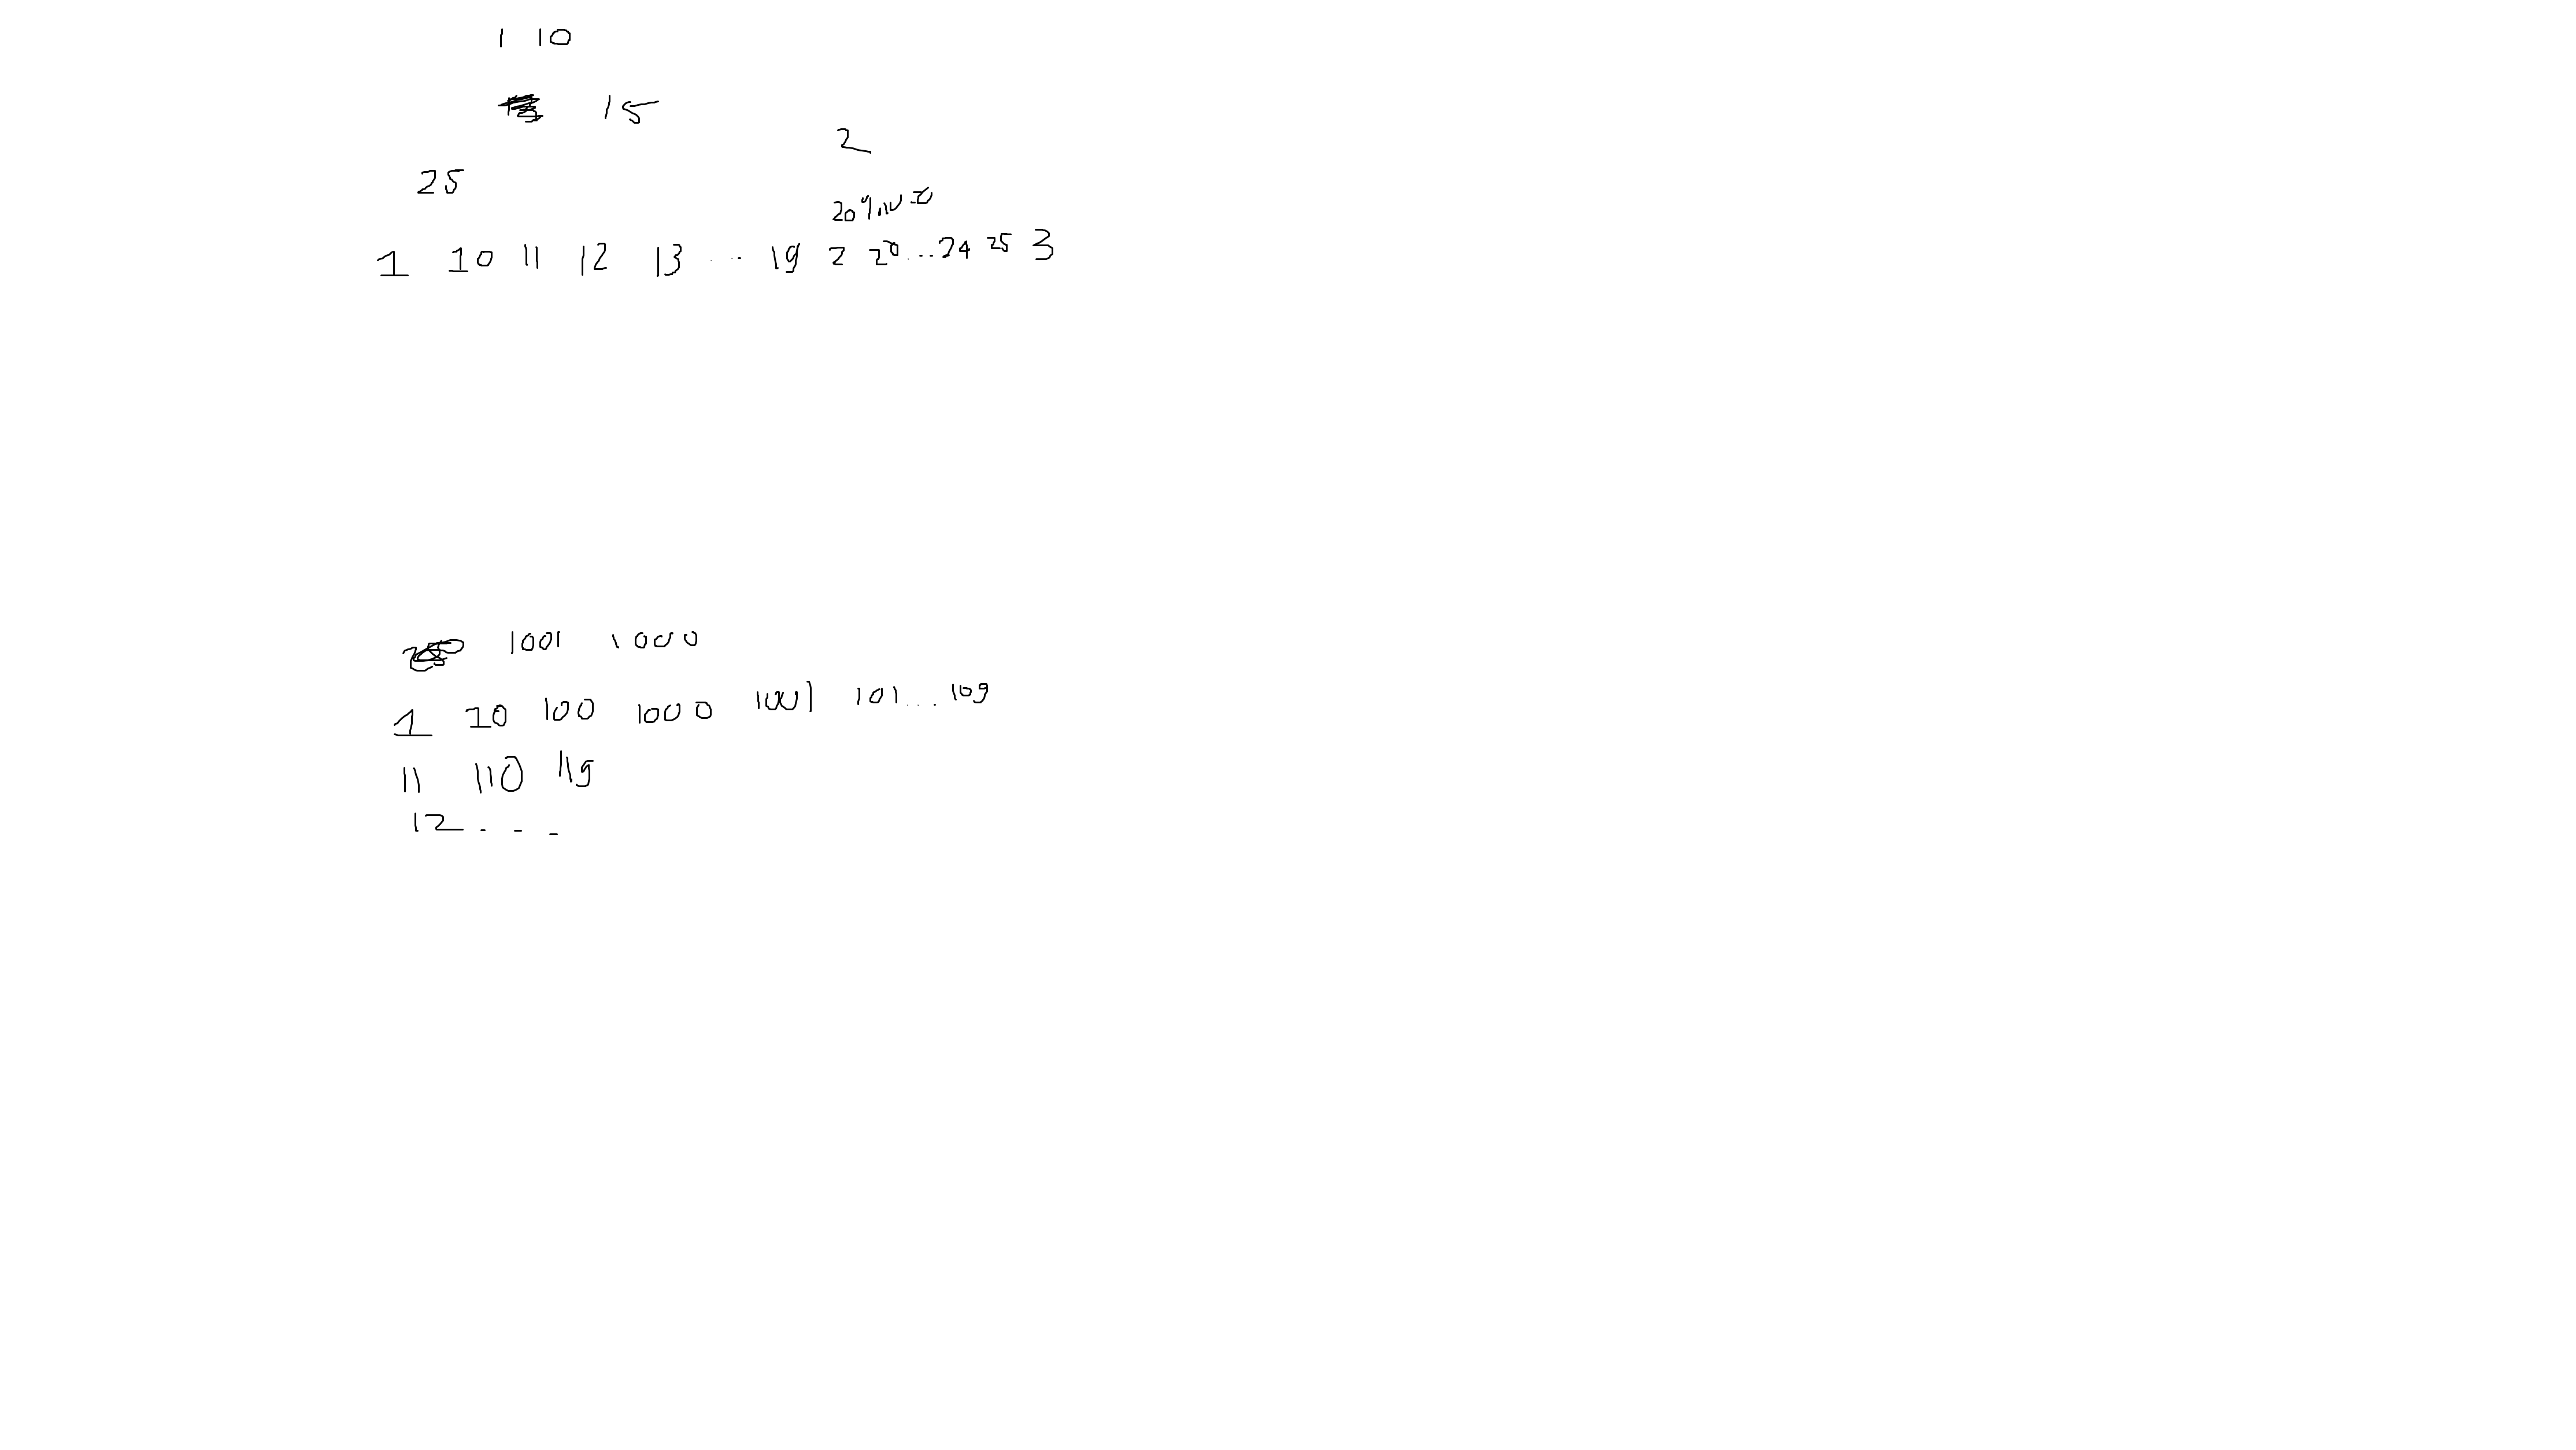 1 10
15
2
25
20%10=0
1 10 11 12 13 ... 19 2 20 ... 24 25 3
1001 1000
1 10 100 1000 1001 101 ... 109
11 110 119
12 - - -